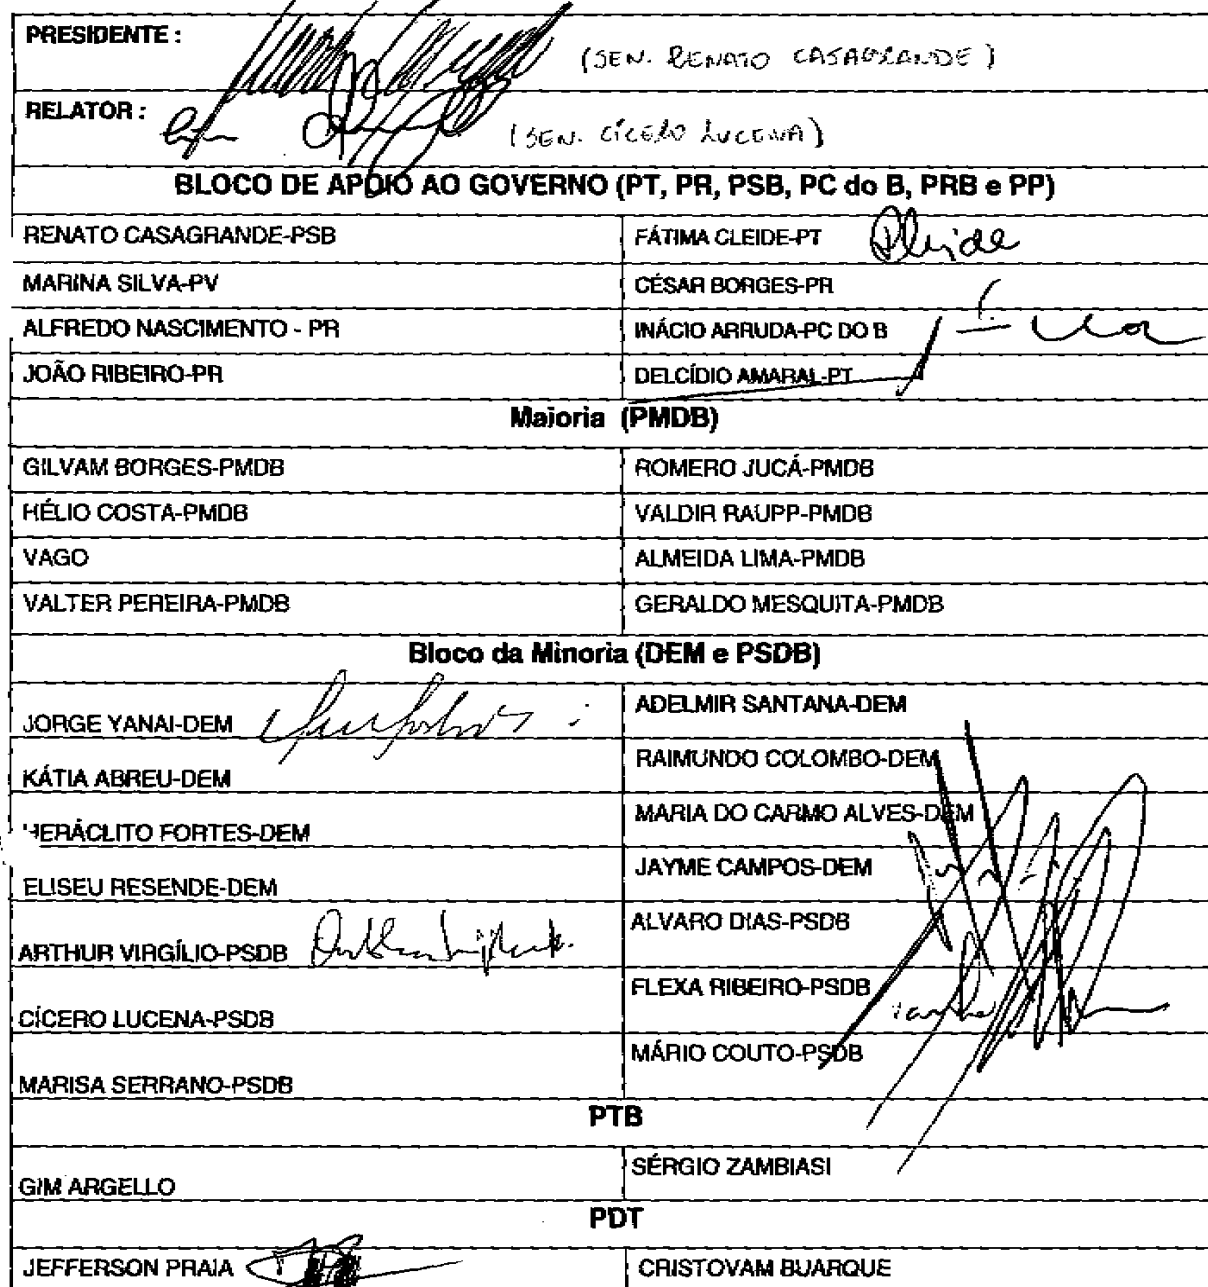 PRESIDENTE :
(SEN. RENATO CASAGRANDE)
RELATOR :
(SEN. CÍCERO LUCENA)
BLOCO DE APOIO AO GOVERNO (PT, PR, PSB, PC do B, PRB e PP)
RENATO CASAGRANDE-PSB
FÁTIMA CLEIDE-PT
MARINA SILVA-PV
CÉSAR BORGES-PR
ALFREDO NASCIMENTO - PR
INÁCIO ARRUDA-PC DO B
JOÃO RIBEIRO-PR
DELCÍDIO AMARAL-PT
Maioria (PMDB)
GILVAM BORGES-PMDB
ROMERO JUCÁ-PMDB
HÉLIO COSTA-PMDB
VALDIR RAUPP-PMDB
VAGO
ALMEIDA LIMA-PMDB
VALTER PEREIRA-PMDB
GERALDO MESQUITA-PMDB
Bloco da Minoria (DEM e PSDB)
JORGE YANAI-DEM
ADELMIR SANTANA-DEM
KÁTIA ABREU-DEM
RAIMUNDO COLOMBO-DEM
HERÁCLITO FORTES-DEM
MARIA DO CARMO ALVES-DEM
ELISEU RESENDE-DEM
JAYME CAMPOS-DEM
ARTHUR VIRGÍLIO-PSDB
ALVARO DIAS-PSDB
CÍCERO LUCENA-PSDB
FLEXA RIBEIRO-PSDB
MARISA SERRANO-PSDB
MÁRIO COUTO-PSDB
PTB
GIM ARGELLO
SÉRGIO ZAMBIASI
PDT
JEFFERSON PRAIA
CRISTOVAM BUARQUE